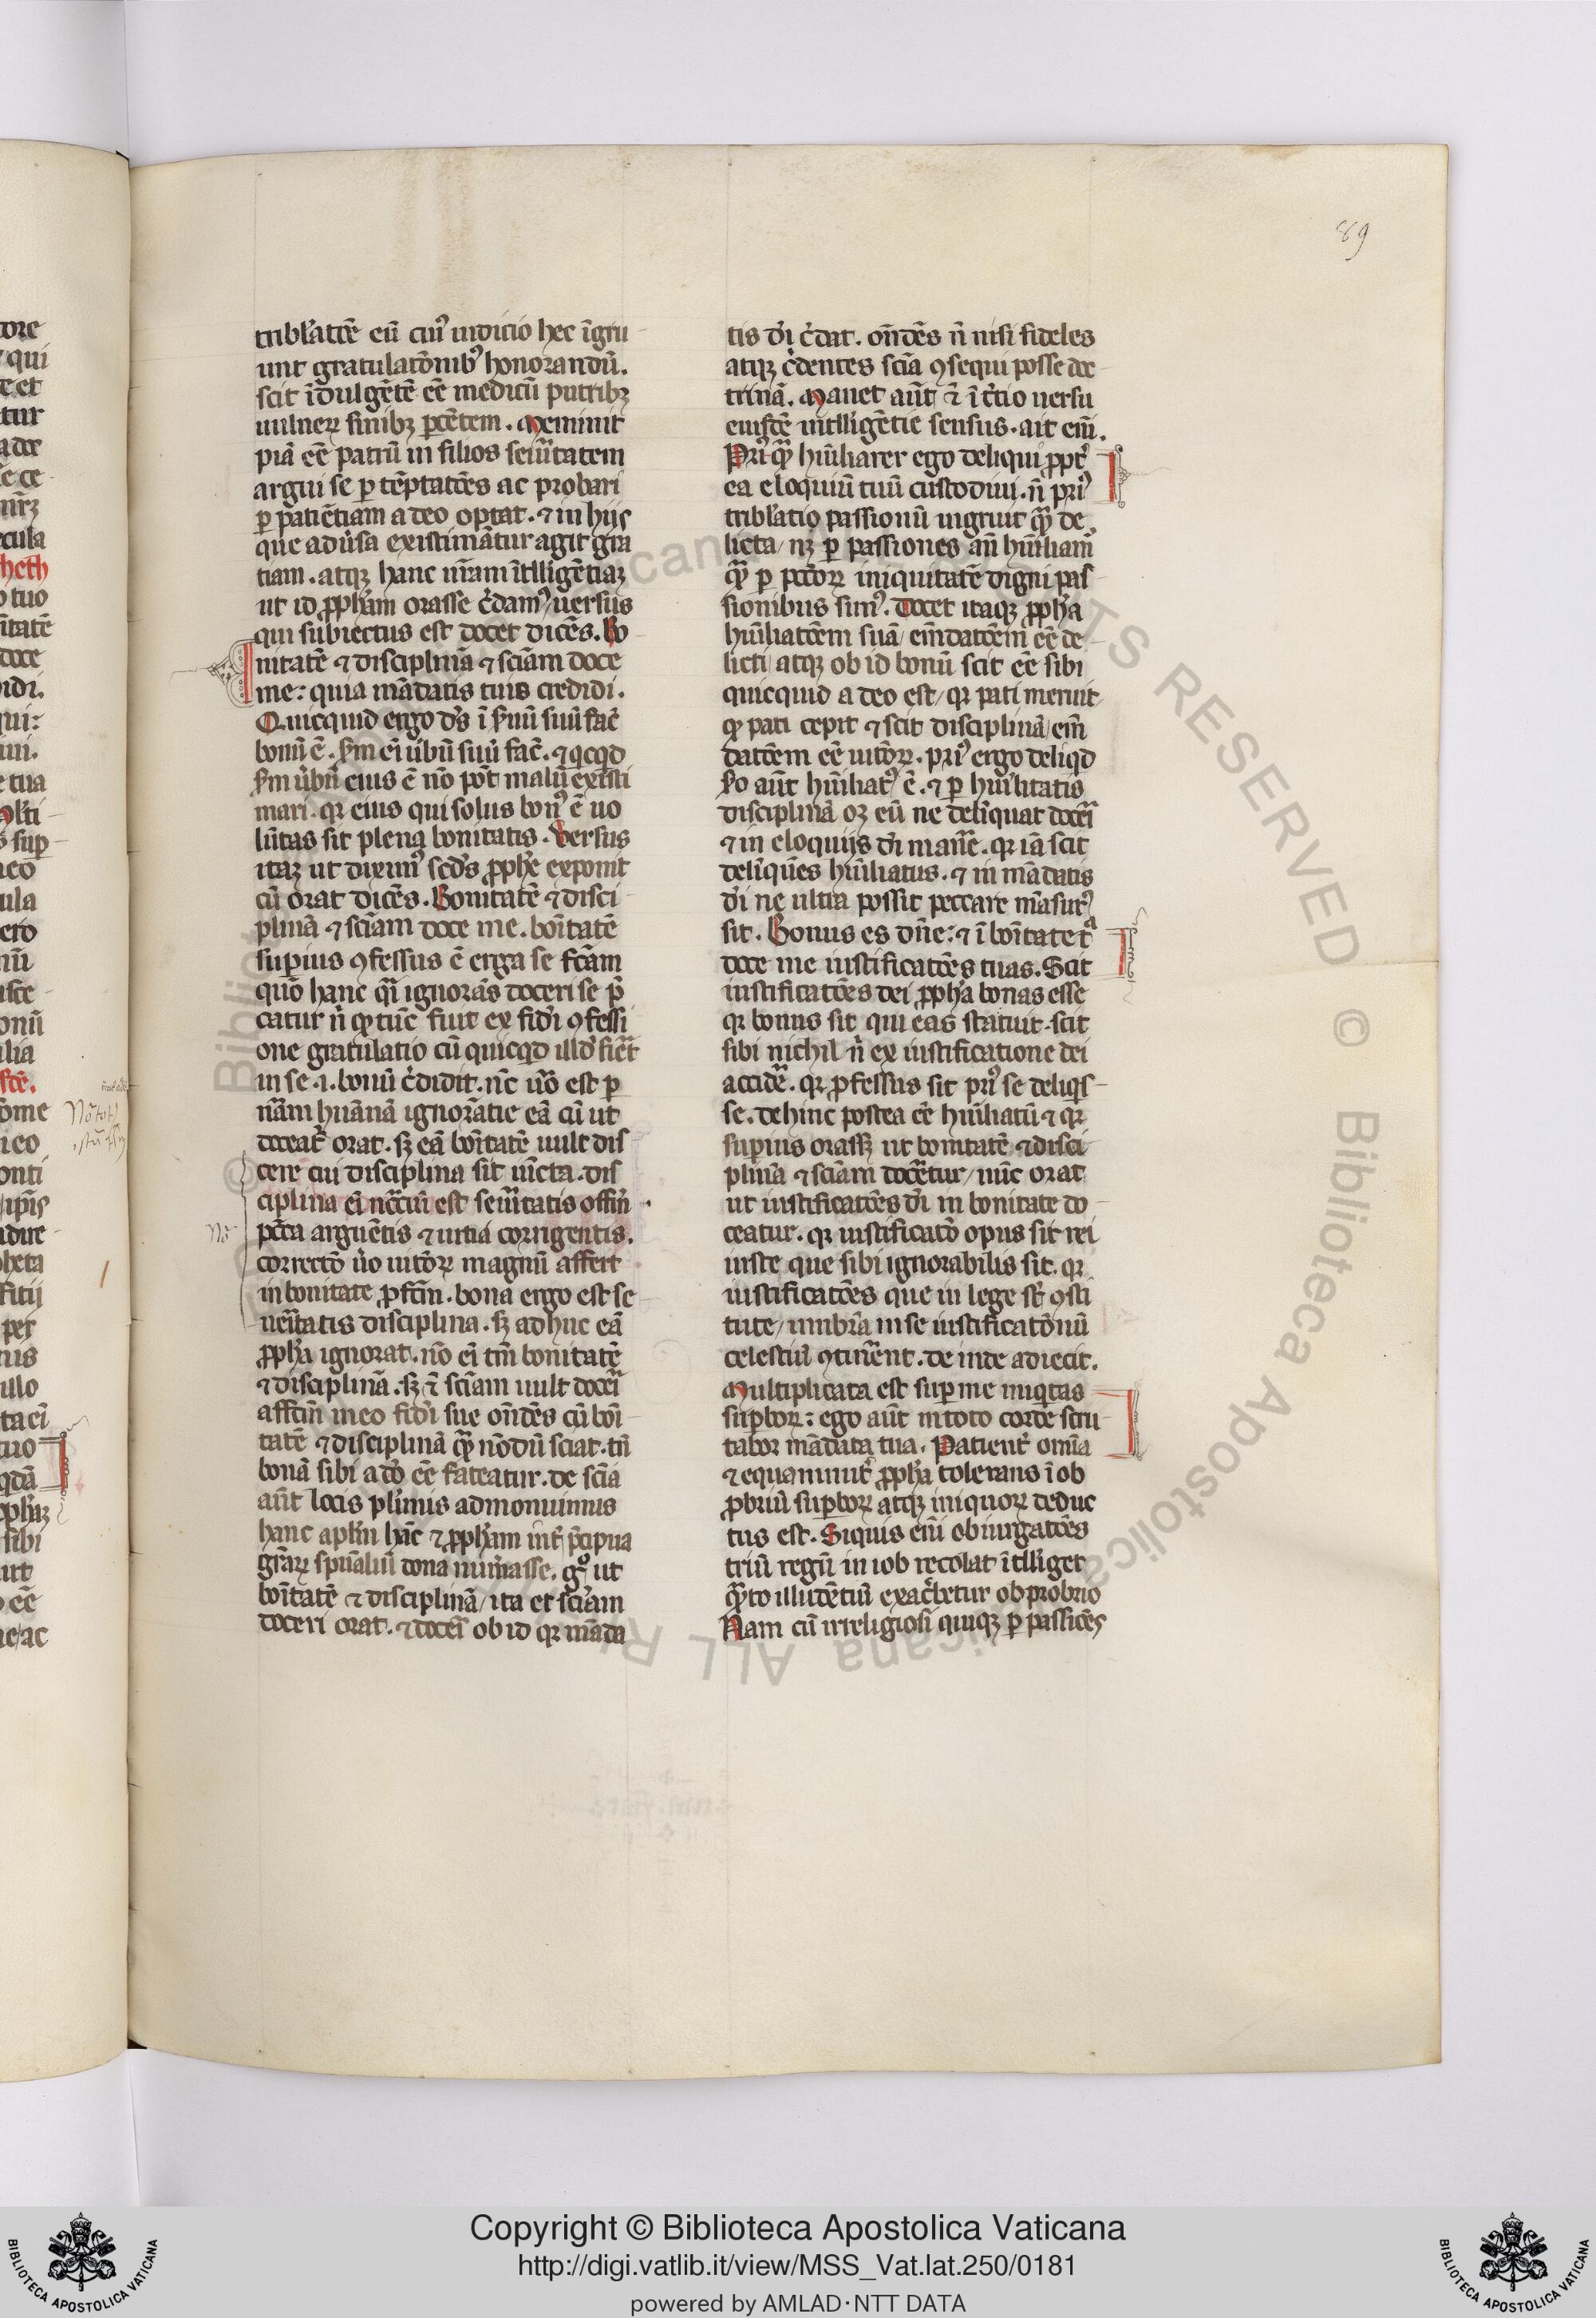 89
tribl'atōe eū cui' iudicio hec īgru
unt gratulatōnib' honorandū.
scit īdulgētē eē medicū putribꝫ
uulneꝝ sinibꝫ ꝑcētem. Meminit
piā eē patrū in filios seiu̅tatem
argui se ꝑ tēptatōes ac probari
ꝑ patiētiam a deo optat. ⁊ in hijs
que adu̓sa existimātur agit gra
tiam. atqꝫ hanc nr̄am ītlligētiaꝫ
ut id ꝓph̓am orasse c̓dam' uersus
qui subiectus est docet dicēs. Bo
nitatē ⁊ disciplinā ⁊ sciām doce
me: quia mādatis tuis credidi.
Quicquid ergo d's ī ẜuū suū fac̄
bonū ē. ẜm ei̅ u̓bū suū fac̄. ⁊ qcqd
ẜm u̓bū eius ē nō pōt malū existi
mari. qꝛ eius qui solus bon' ē uo
lūtas sit plena bonitatis. Versus
itaꝫ ut dixim' scd's ꝓph̓e exponit
cū orat dicēs. Bonitatē ⁊ disci
plinā ⁊ sciām doce me. boītatē
suꝑius ꝯfessus ē erga se fcām
quō hanc qi̅ ignorās doceri se p̄
catur n̄ qꝫ tūc fuit ex fid'i ꝯfessi
one gratulatio cū quicqd illd' fieꝛ̄t
in se .i. bonū c̓didit. nc̄ uō est ꝑ
nām huānā ignorātie eā cū ut
doceat̓ orat. sꝫ eā boītatē uult dis
cere cui disciplina sit iūcta. dis
ciplina ei̅ nc̄ciū est seiu̅tatis offin̄
pctā arguētis ⁊ uitia corrigentis.
correctō u̓o uitōꝝ magnū affert
in bonitate ꝓfcm̄. bona ergo est se
ueri̅tatis disciplina. sꝫ adhuc eā
ꝓph̓a ignorat. nō ei̅ tm̄ bonitatē
⁊ disciplinā. sꝫ ⁊̄ sciām uult doceri̅
affctm̄ in eo fid'i sue on̄dēs cū boni̅
tatē ⁊ disciplinā qꝫ nōdū sciat. tn̄
bonā sibi a do̓ eē fateatur. de sciā
aūt locis plimis admonuimus
hanc apl'm hāc ⁊ ꝓph̓am int̓ p̄cipua
grāꝝ spūaliū dona nūmasse. gͦ ut
boītatē ⁊ disciplinā / ita et sciām
doceri orat. ⁊ doceri̅ ob id qꝛ māda
tis d'i c̓dat. on̄dēs n̄ nisi fideles
atqꝫ c̓dentes sciā ꝯsequi posse doc
trinā. Manet aūt ⁊̄ ī t̓tio uersu
eiusdē intlligētie sensus. ait eni̅.
Pri' qꝫ hūiliarer ego deliqui ꝓpt̓
ea eloquiū tuū custodiui. n̄ pri'
tribl'atio passionū ingruit qꝫ de
licta / nꝫ ꝑ passiones an̄ hūiliam̄
qꝫ ꝑ pctōꝝ iniquitatē digni pas
sionibus sim'. docet itaqꝫ ꝓph̓a
hūiliatōem suā / em̄datōem eē de
licti / atqꝫ ob id bonū scit eē sibi
quicquid a deo est / qꝛ pati meruit
qꝫ pati cepit ⁊ scit disciplinā / em̄
datōem eē uitōꝝ. pri' ergo deliqd
ẜo aūt hūiliat' ē. ⁊ ꝑ hūilitatis
disciplinā oꝫ eū ne delīquat doceri̅
⁊ in eloquijs d'i manꝛ̄e. qꝛ iā scit
delīquēs hūiliatus. ⁊ in mādatis
d'i ne ultra possit peccare māsur'
sit. Bonus es dn̄e: ⁊ ī boītate tͣ
doce me iustificatōes tuas. Scit
iustificatōes dei ꝓph̓a bonas esse
qꝛ bonus sit qui eas statuit. scit
sibi nichil n̄ ex iustificatione dei
accidꝛ̄e. qꝛ ꝓfessus sit pri' se deliqs
se. dehinc postea eē hūiliatū ⁊ qꝛ
suꝑius orassꝫ ut bonitatē ⁊ disci
plinā ⁊ sciām doceretur / nūc orat
ut iustificatōes d'i in bonitate do
ceatur. qꝛ iustificatō opus sit rei
iuste que sibi ignorabilis sit. qꝛ
iustificatōes que in lege st̄ ꝯsti
tute / umbrā in se iustificatōnū
celestiū ꝯtinꝛ̄ent. de inde adiecit.
Multiplicata est suꝑ me iniqitas
suꝑboꝝ: ego aūt in toto corde scru
tabor mādata tua. Patient̓ omīa
⁊ equanimit̓ ꝓph̓a tolerans ī ob
ꝓbriū suꝑboꝝ atqꝫ iniquoꝝ deduc
tus est. Siquis eni̅ obiurgatōes
triū regū in iob recolat ītlliget
qꝫto illudētiū exac̓betur obprobrio
Nam cū irreligiosi̅ quiqꝫ ꝑ passiōes
Copyright © Biblioteca Apostolica Vaticana
http://digi.vatlib.it/view/MSS_Vat.lat.250/0181
powered by AMLAD·NTT DATA